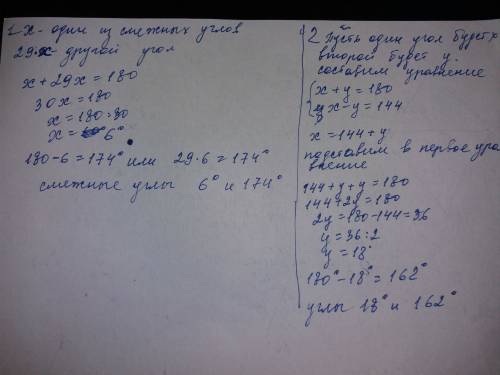 1 x - один из смежных углов
29·x - другой угол
x + 29x = 180
30x = 180
x = 180:30
x = 6°
180 - 6 = 174° или 29·6 = 174°
смежные углы 6° и 174°
2 Пусть один угол будет x
второй будет y.
составим уравнение
x + y = 180
x - y = 144
x = 144 + y
подставим в первое ура
внение
144 + y + y = 180
144 + 2y = 180
2y = 180 - 144 = 36
y = 36:2
y = 18°
180° - 18° = 162°
углы 18° и 162°